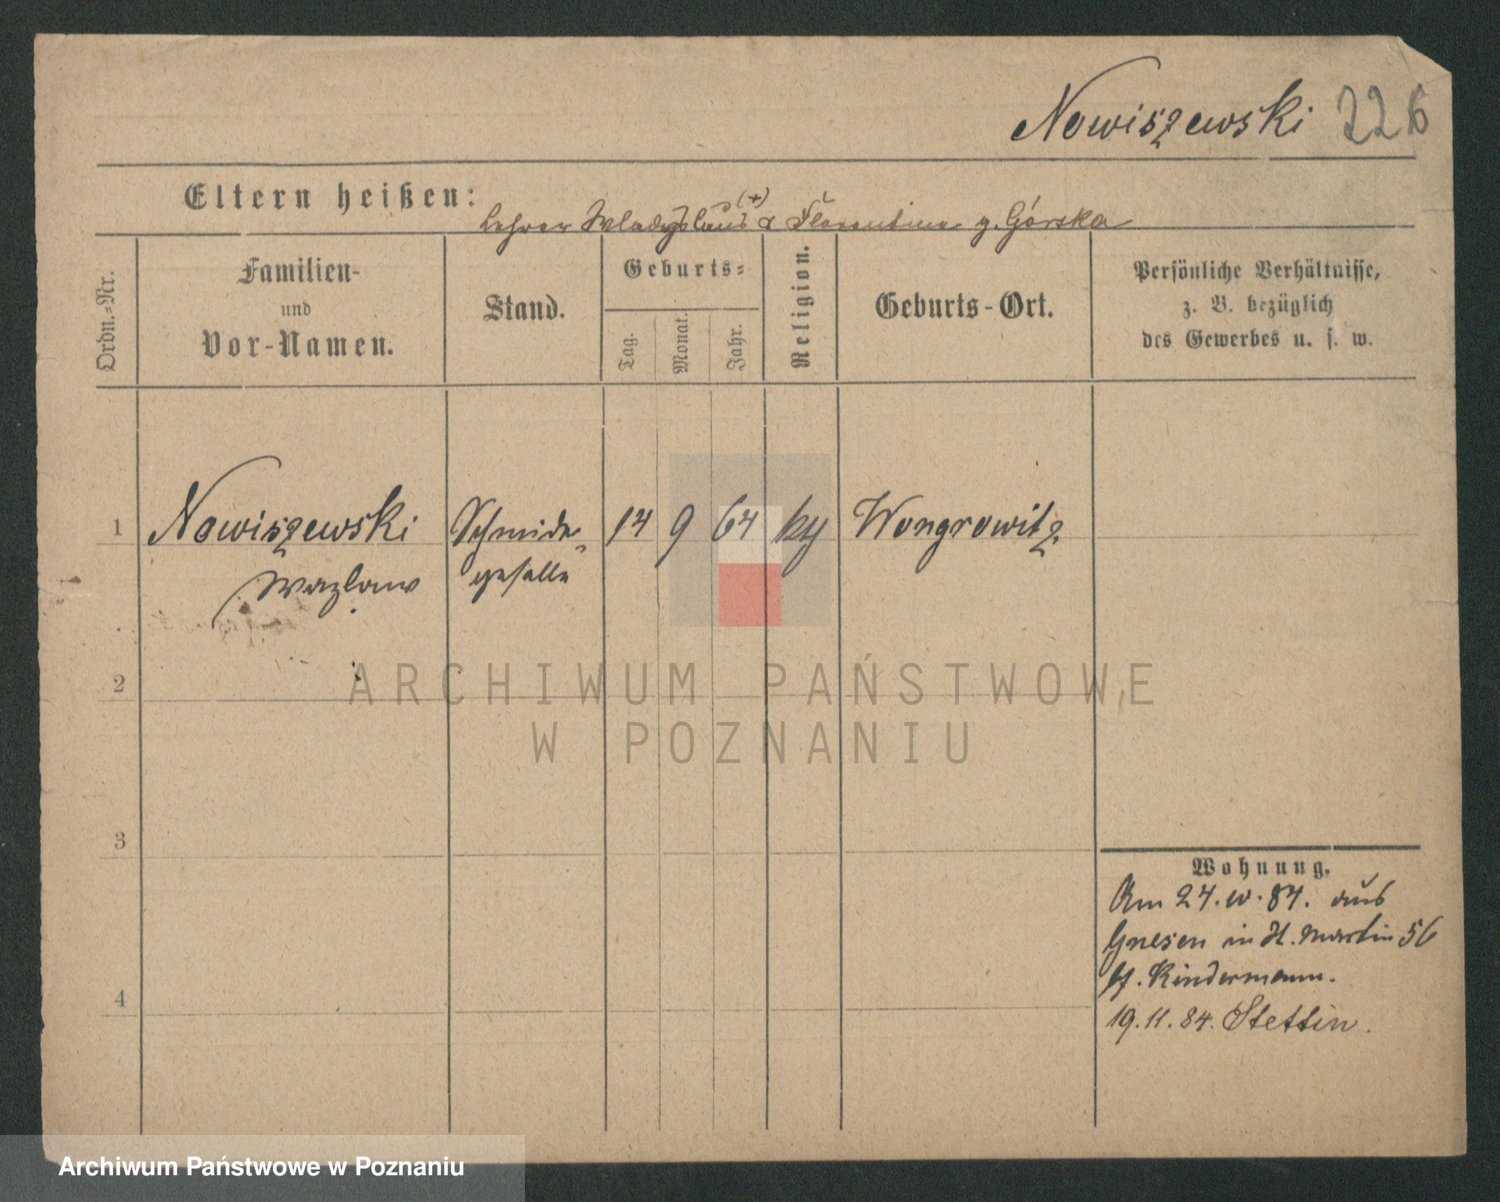 Nowiszewski 226
Eltern heißen:
Lehrer Wladyslaus (+) & Florentine g. Górska
Ordn.-Nr.
Familien-
und
Vor-Namen.
Stand.
Geburts-
Tag.
Monat.
Jahr.
Religion.
Geburts-Ort.
Persönliche Verhältnisse,
z. B. bezüglich
des Gewerbes u. s. w.
1 Nowiszewski Schmide- 14 9 64 Wongrowitz
Wazlaw geselle
2
3
4
Wohnung.
Am 24. 84. aus
Gnesen in St. Martin 56
b/. Kindermann.
19. 11. 84. Stettin.
ARCHIWUM PAŃSTWOWE
W POZNANIU
Archiwum Państwowe w Poznaniu